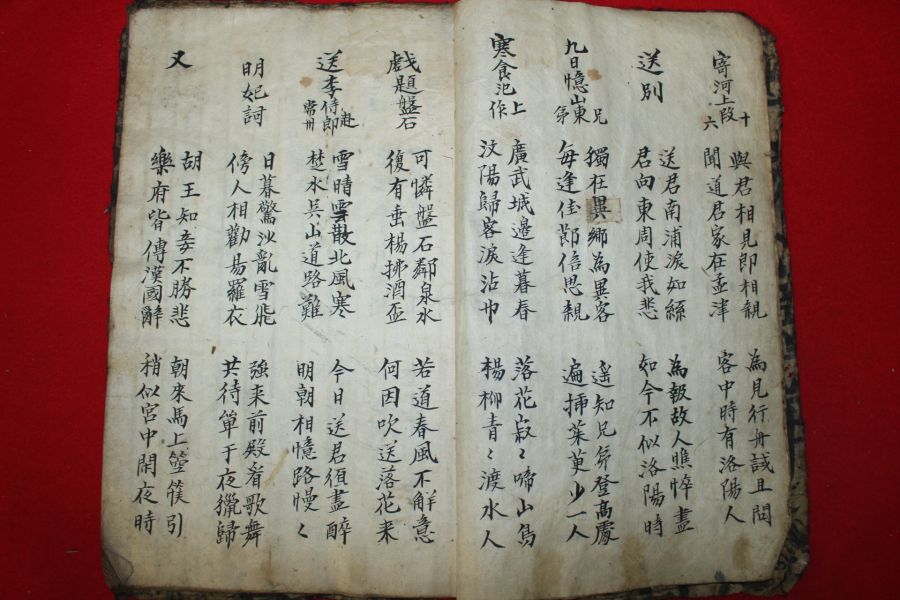 寄河上段十六
與君相見即相親
聞道君家在孟津
為見行舟試且問
客中時有洛陽人
送別
送君南浦淚如絲
君向東周使我悲
為報故人憔悴盡
如今不似洛陽時
九日憶山東兄弟
獨在異鄉為異客
每逢佳節倍思親
遙知兄弟登高處
遍插茱萸少一人
寒食汜上作
廣武城邊逢暮春
汶陽歸客淚沾巾
落花寂〻啼山鳥
楊柳青〻渡水人
戲題盤石
可憐盤石鄰泉水
復有垂楊拂酒盃
若道春風不解意
何因吹送落花来
送李侍郎赴常州
雪晴雲散北風寒
楚水吳山道路難
今日送君須盡醉
明朝相憶路慢〻
明妃詞
日暮驚沙亂雪飛
傍人相勸易羅衣
強来前殿看歌舞
共待單于夜獵歸
又
胡王知妾不勝悲
樂府皆傳漢國辭
朝來馬上箜篌引
稍似宮中閑夜時